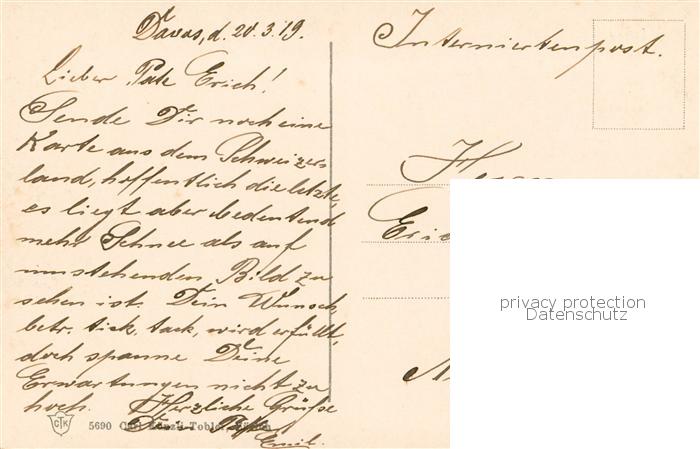 Davos, d. 20.3.19.
Lieber Pate Erich!
Sende Dir noch eine
Karte aus dem Schweizer
land, hoffentlich die letzte,
es liegt aber bedeutend
mehr Schnee als auf
umstehenden Bild zu
sehen ist. Dein Wunsch
betr. tick, tack, wird erfüllt,
doch spanne Deine
Erwartungen nicht zu
hoch. Herzliche Grüße
Dein Pate
Emil.
CTK
5690 Carl Künzli-Tobler, Zürich
Interniertenpost.
Herrn
Eric
privacy protection
Datenschutz